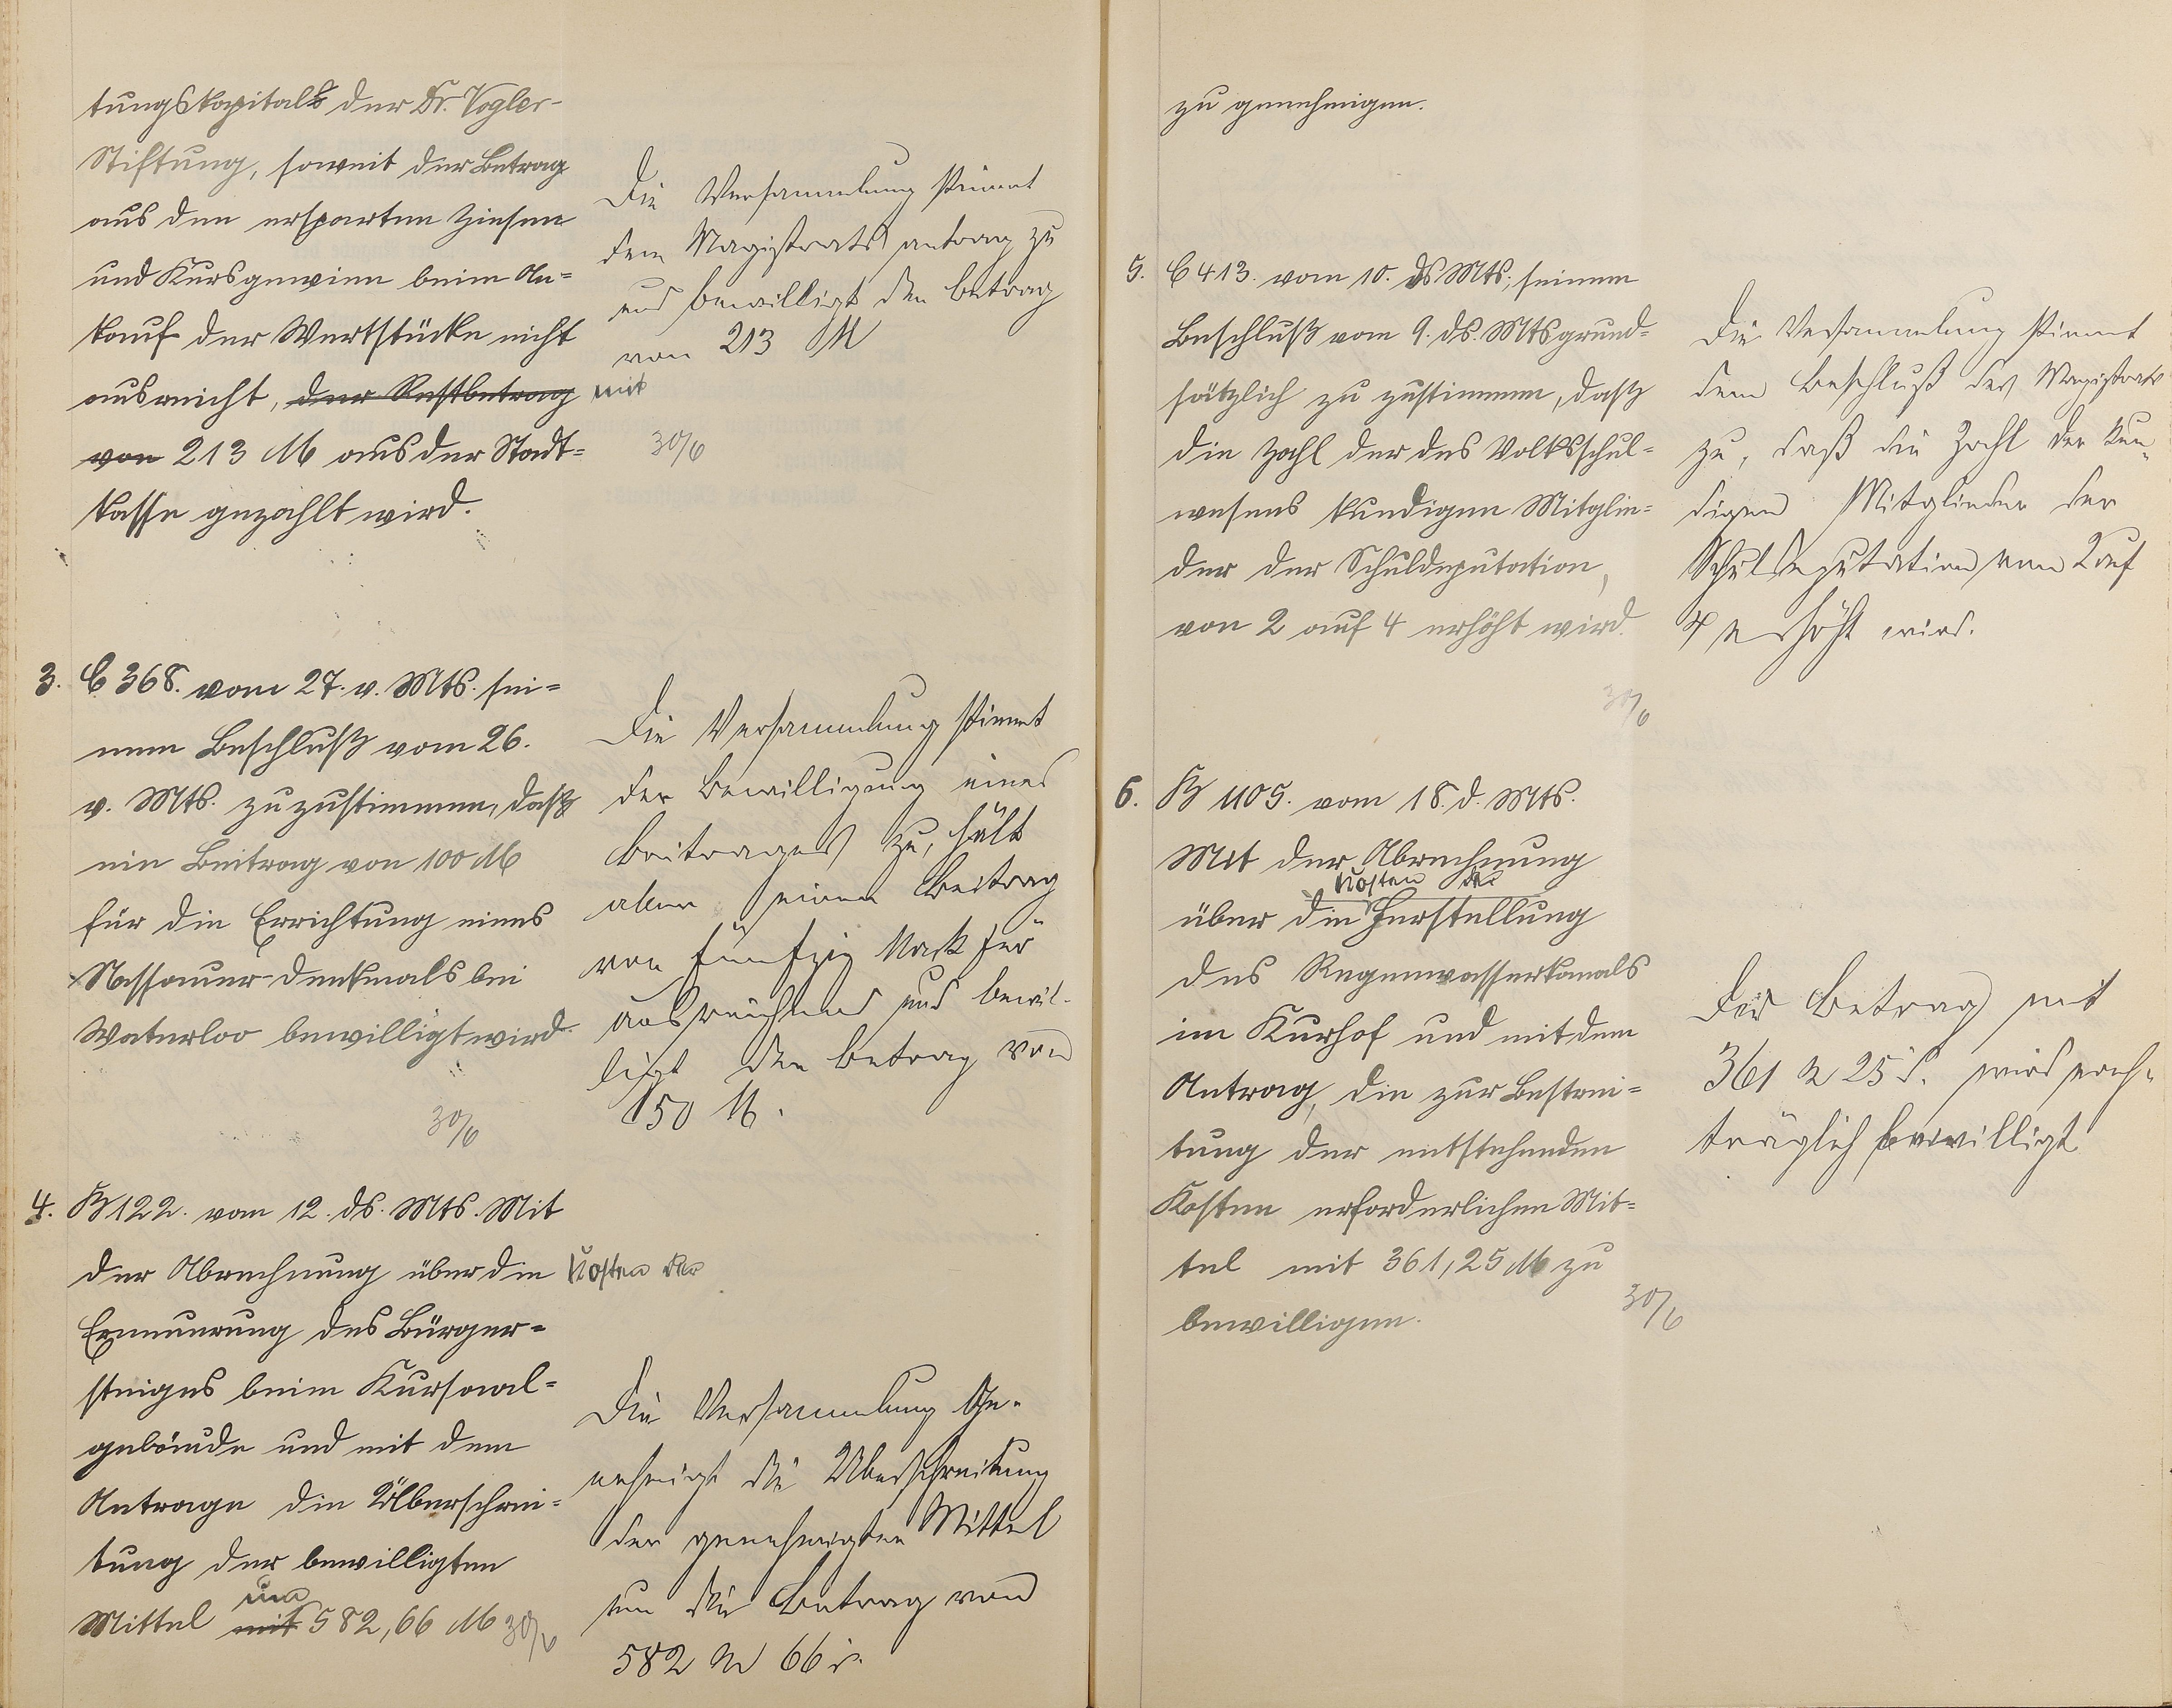 tungskapitals der Dr. Vogler-
Stiftung, soweit der Betrag
aus den ersparten Zinsen
und Kursgewinn beim An=
kauf der Wertstücke nicht
ausreicht, der Restbetrag mit
von 213 M aus der Stadt=
kasse gezahlt wird.
30/6
Die Versammlung stimmt
dem Magistratsantrag zu
und bewilligt den Betrag
von 213 M
3. C 368. vom 27. v. Mts. sei=
nem Beschluß vom 26.
v. Mts. zuzustimmen, daß
ein Beitrag von 100 M
für die Errichtung eines
Nassauer-Denkmals bei
Waterloo bewilligt wird.
30/6
Die Versammlung stimmt
der Bewilligung eines
Beitrages zu, hält
aber einen Beitrag
von fünfzig Mark für
ausreichend und bewil-
ligt den Betrag von
50 M.
4. B 122. vom 12. ds. Mts. Mit
der Abrechnung über die Kosten der
Erneuerung des Bürger=
steiges beim Kursaal=
gebäude und mit dem
Antrage die Überschrei=
tung der bewilligten
um
Mittel mit 582,66 M 30/6
Die Versammlung Ge-
nehmigt die Überschreitung
der genehmigten Mittel
um die Betrag von
582 M 66 d.
zu genehmigen.
5. C 413. vom 10. ds Mts., seinem
Beschluß vom 9. ds. Mts grund=
sätzlich zu zustimmen, daß
die Zahl der des Volksschul=
wesens kundigen Mitglie=
der der Schuldeputation,
von 2 auf 4 erhöht wird.
30/6
Die Versammlung stimmt
dem Beschluß des Magistrats
zu, daß die Zahl der kun-
digen Mitglieder der
Schuldeputation von 2 auf
4 erhöht wird.
6. B 1105. vom 18. d. Mts.
Mit der Abrechnung
Kosten der
über die Herstellung
des Regenwasserkanals
im Kurhof und mit dem
Antrag, die zur Bestrei=
tung der entstehenden
Kosten erforderlichen Mit=
tel mit 361,25 M zu
bewilligen.
30/6
Der Betrag mit
361 M 25 d. wird nach-
träglich bewilligt